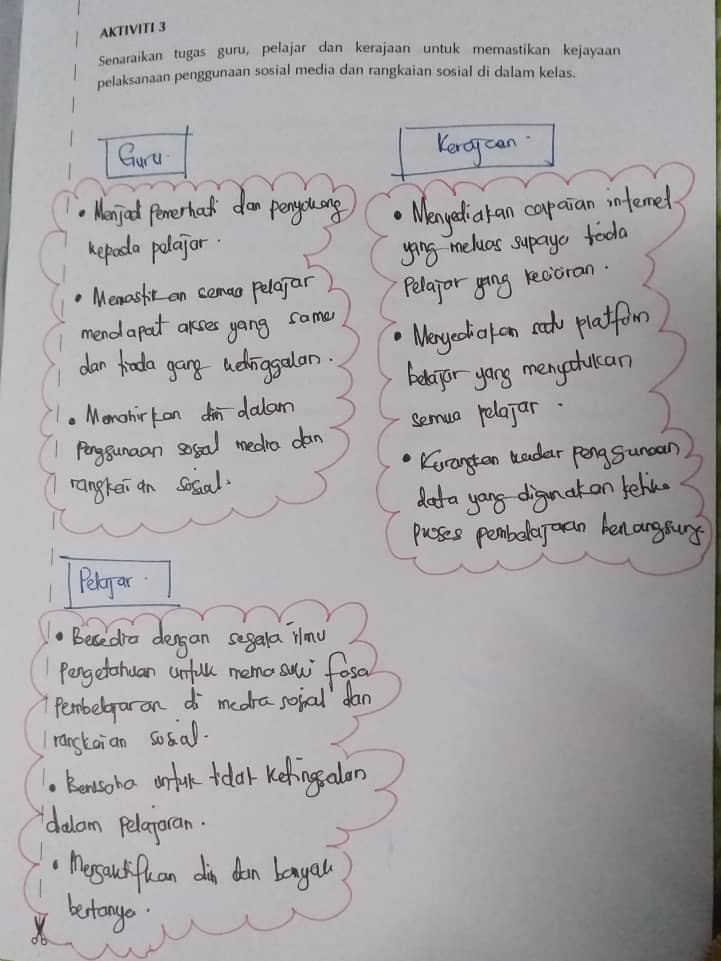 AKTIVITI 3
Senaraikan tugas guru, pelajar dan kerajaan untuk memastikan kejayaan
pelaksanaan penggunaan sosial media dan rangkaian sosial di dalam kelas.
Guru.
• Menjadi Pemerhati dan penyokong
kepada pelajar.
• Memastikan semua pelajar
mendapat akses yang sama
dan tiada yang ketinggalan.
• Memahirkan diri dalam
Penggunaan sosial media dan
rangkaian sosial.
Kerajaan.
• Menyediakan capaian internet
yang meluas supaya tiada
Pelajar yang keciciran.
• Menyediakan satu platform
belajar yang menyatukan
semua pelajar.
• Kurangkan kadar penggunaan
data yang digunakan ketika
Proses pembelajaran berlangsung
Pelajar.
• Bersedia dengan segala ilmu
Pengetahuan untuk memasuki fasa
Pembelajaran di media sosial dan
rangkaian sosial.
• Berusaha untuk tidak ketinggalan
dalam Pelajaran.
• Mengaktifkan diri dan banyak
bertanya.